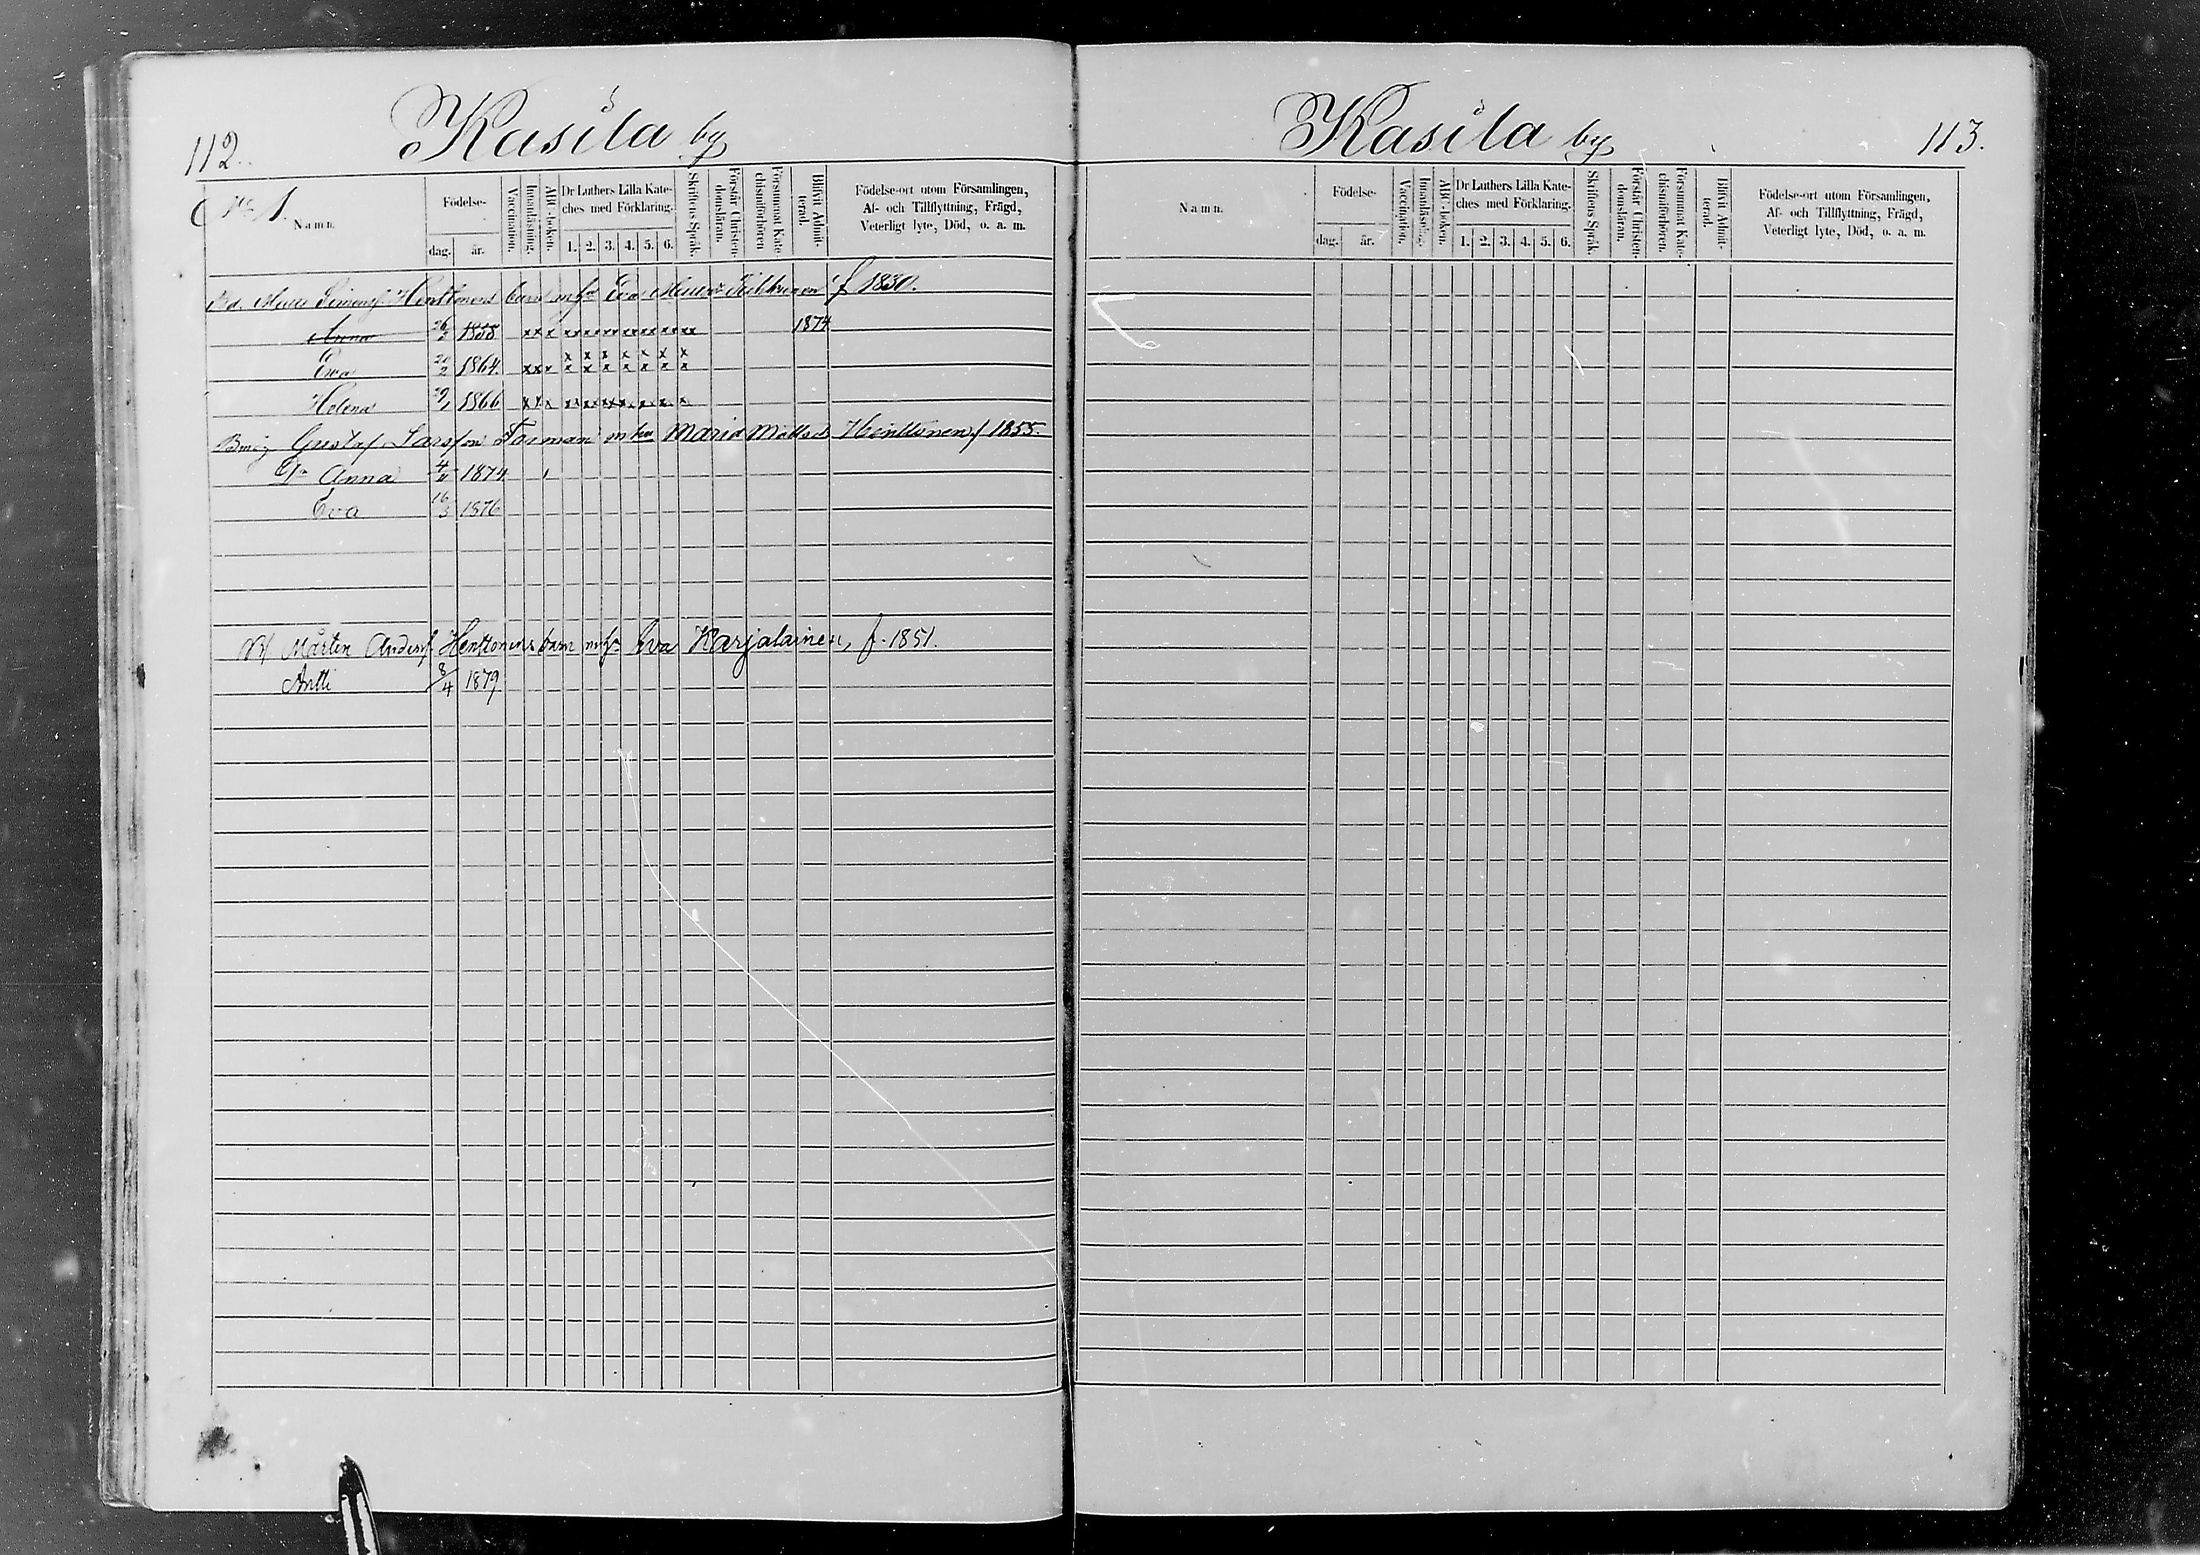 112.
Kasila by
No 1.
Namn.
Födelse-
dag. år.
Vaccination.
Innanläsning.
ABC-boken.
Dr Luthers Lilla Kateches med Förklaring.
1. 2. 3. 4. 5. 6.
Skriftens Språk.
Förstår Christendomsläran.
Försummat Katechismiförhören.
Blifvit Admitterad.
Födelse-ort utom Församlingen,
Af- och Tillflyttning, Frägd,
Veterligt lyte, Död, o. a. m.
Henttonens barn m. h. Eva f 1830.
Anna 26/2 1858 1874
Eva 20/2 1864
Helena 1866
Gustaf Larsson m. h. Maria Matsd. Henttonen f 1855.
Dr Anna 1874
Eva 16/3 1876
Mårten Andersf. Henttonens barn m. h. Eva Karjalainen, f. 1851.
Antti 8/4 1879
Kasila by
113.
Namn.
Födelse-
dag. år.
Vaccination.
Innanläsning.
ABC-boken.
Dr Luthers Lilla Kateches med Förklaring.
1. 2. 3. 4. 5. 6.
Skriftens Språk.
Förstår Christendomsläran.
Försummat Katechismiförhören.
Blifvit Admitterad.
Födelse-ort utom Församlingen,
Af- och Tillflyttning, Frägd,
Veterligt lyte, Död, o. a. m.